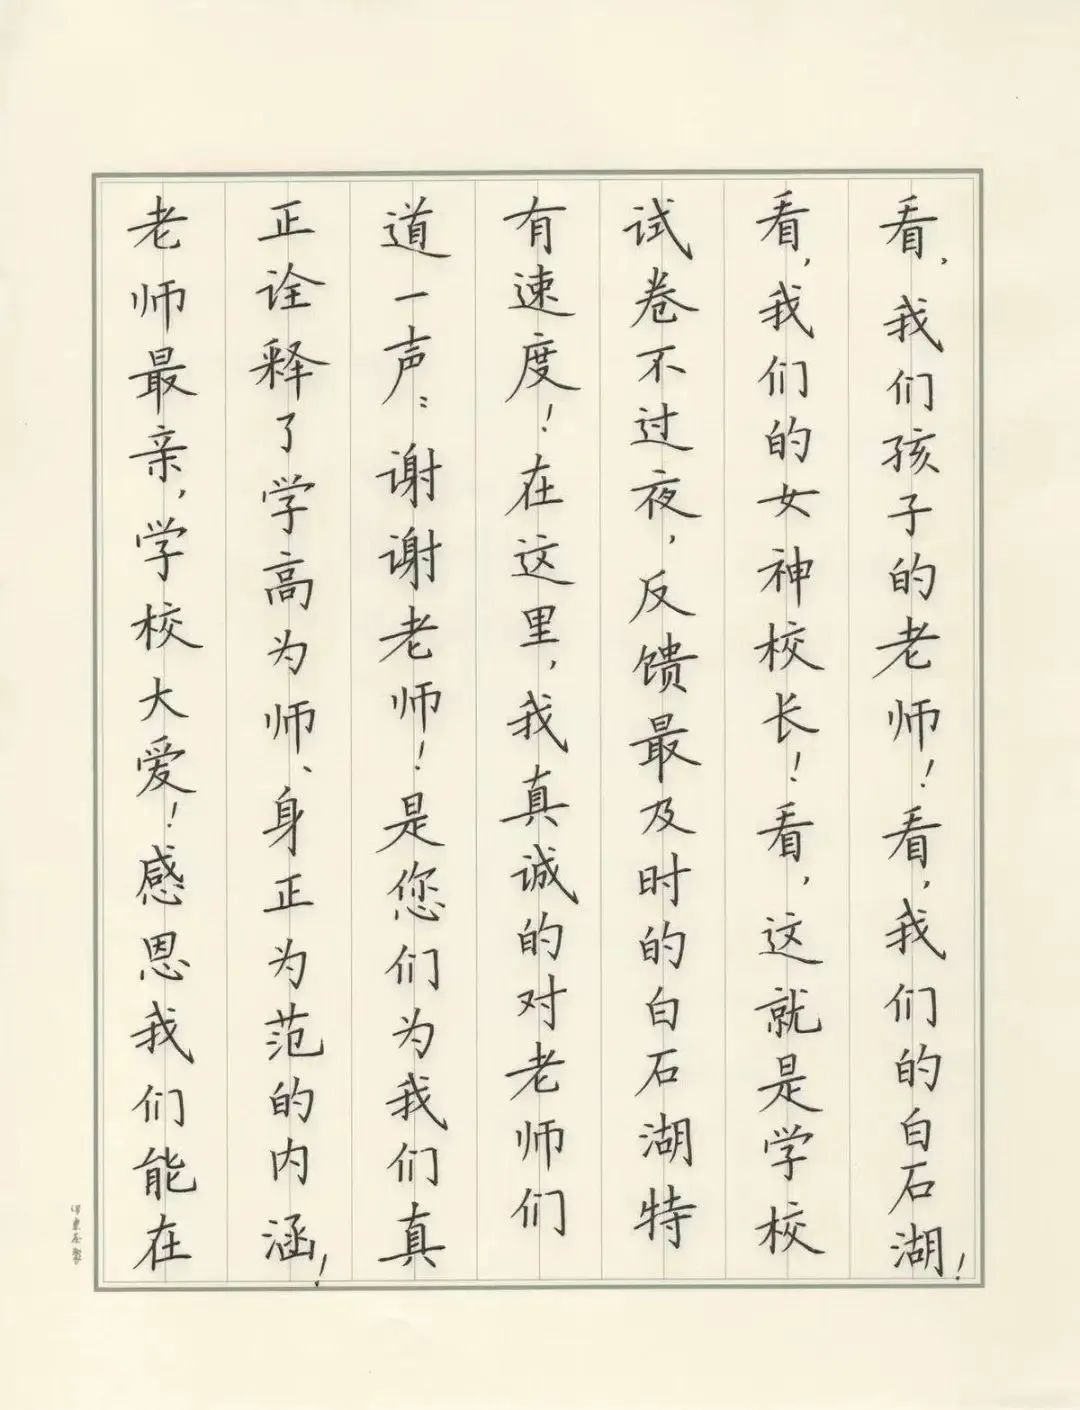 看，我们孩子的老师！看，我们的白石湖！
看，我们的女神校长！看，这就是学校
试卷不过夜，反馈最及时的白石湖特
有速度！在这里，我真诚的对老师们
道一声：谢谢老师！是您们为我们真
正诠释了学高为师、身正为范的内涵！
老师最亲，学校大爱！感恩我们能在